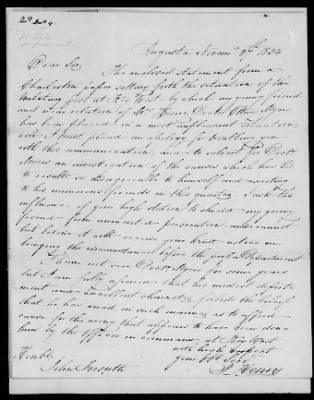 Augusta Novem 9th 1834
Dear Sir
The enclosed Statement from a
Charleston paper setting forth the situation of the
Military post at Key West - by which my young friend
and near relation of Mr Doctor
has been placed in a most unpleasant situation,
will I trust plead an apology for troubling you
with this communication, and to solicit for Doctr
an investigation of the causes which has led
to results so disagreeable to himself and exciting
to his numerous friends in this quarter. I ask the
influence of your high station to shield my young
friend from unmerited persecution, and cannot
but believe it will receive your kind notice in
bringing the circumstances before the proper Department
I have not seen Doctr for some years
but I am fully assured that his medical depart-
ment and excellent character, forbids the belief
that he has acted in such manner as to afford
cause for the wrong that appears to have been done
him by the officer in command at Key West
with high respect
your Obt Servt
Henry
Honble
John Forsyth